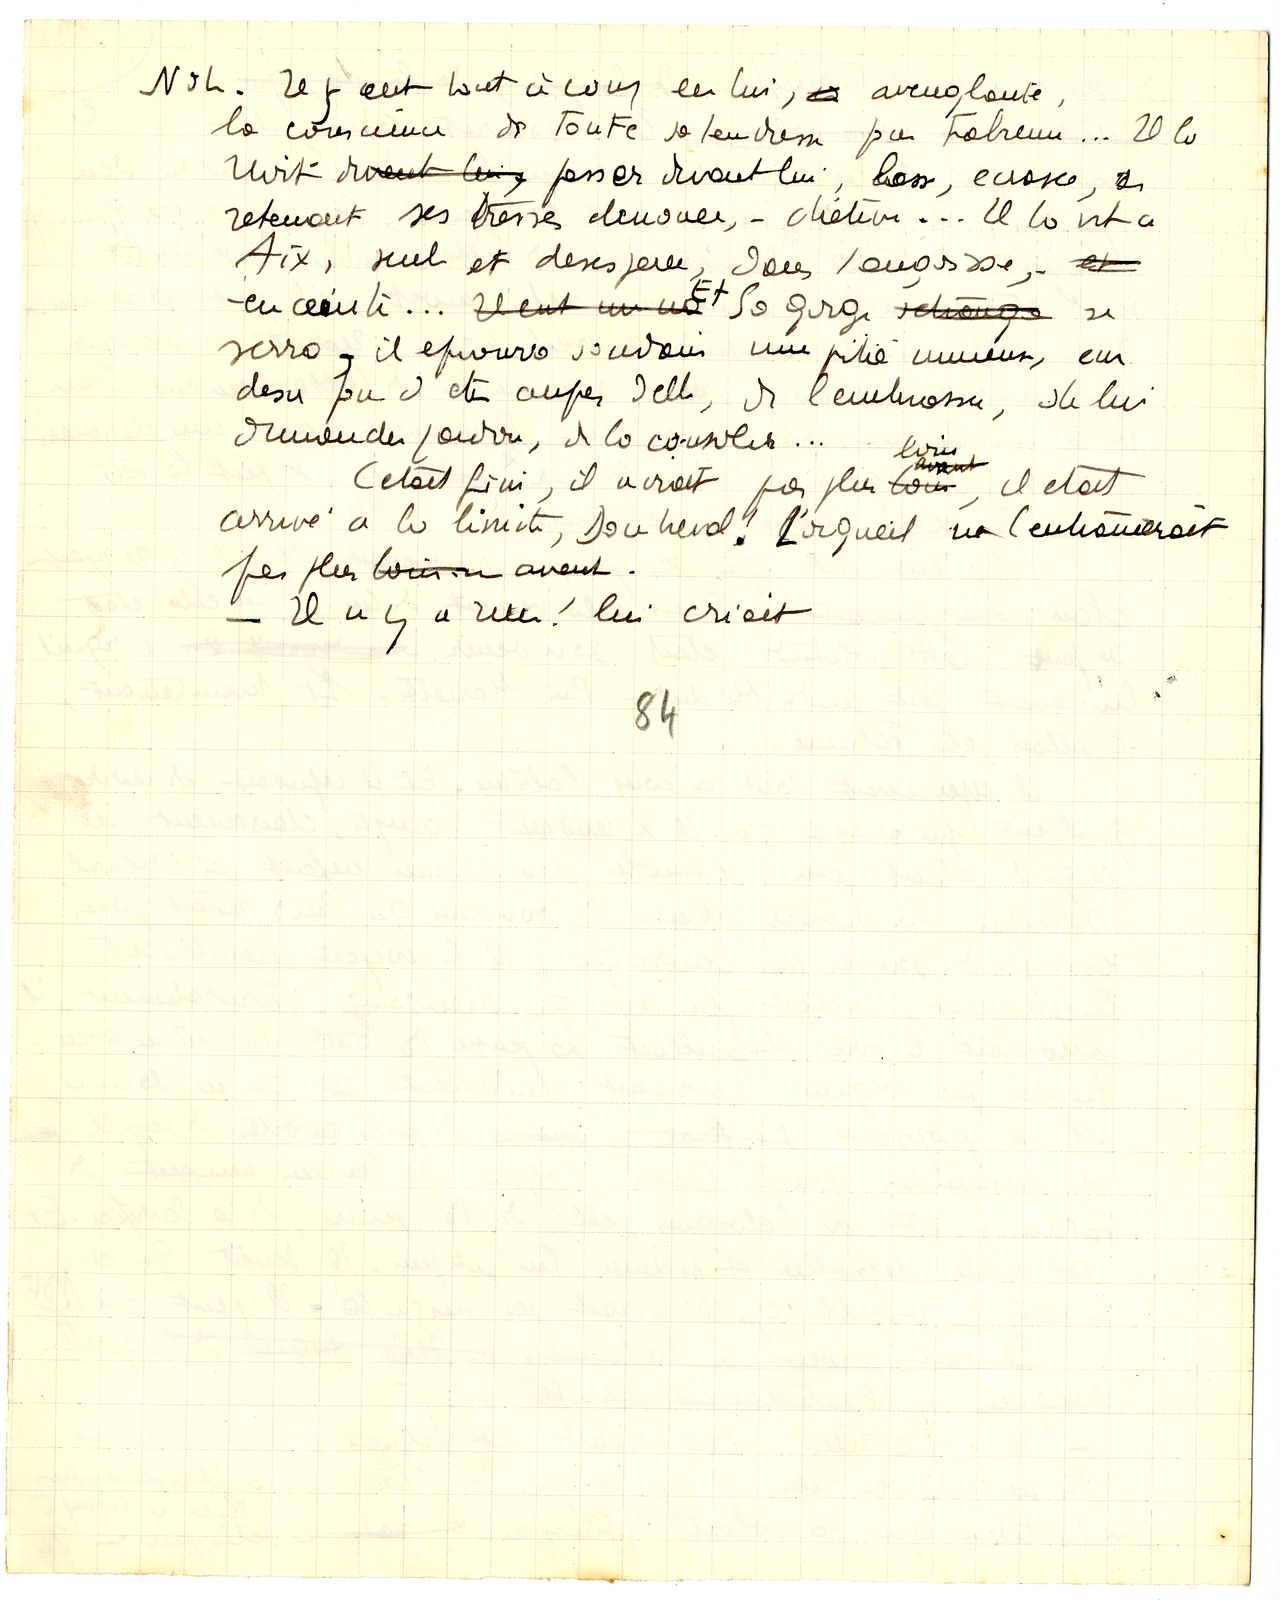 Il y eut tout à coup en lui, aveuglante,
la conscience de toute sa tendresse pour Fabienne... Il la
vit devant lui, passer devant lui, lasse, écrasée,
retenant ses tresses dénouées, - chétive... Il la vit à
Aix, seule et désespérée, dans l'angoisse, - et
- enceinte... Il eut un Et Sa gorge s'étrangla se
serra, il éprouva soudain une pitié immense, un
désir fou d'être auprès d'elle, de l'embrasser, de lui
demander pardon, de la consoler...
loin
avant
C'était fini, il n'irait pas plus loin, il était
arrivé à la limite, Bon heval! L'orgueil ne l'entraînerait
pas plus loin avant.
— Il n'y a rien! lui criait
84